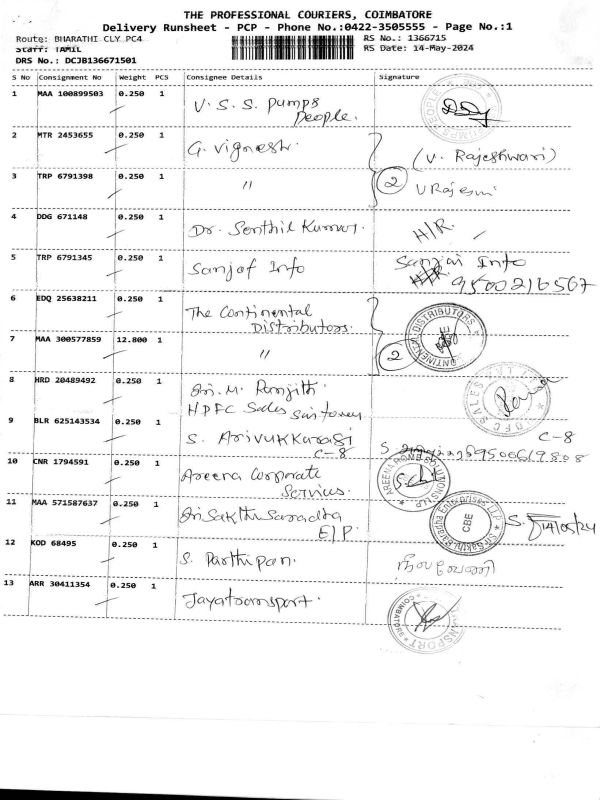 THE PROFESSIONAL COURIERS, COIMBATORE
Delivery Runsheet - PCP - Phone No.:0422-3505555 - Page No.:1
Route: BHARATHI CLY PC4 RS No.: 1366715
Staff: TAMIL RS Date: 14-May-2024
DRS No.: DCJB136671501
S No Consignment No Weight PCS Consignee Details Signature
1 MAA 100899503 0.250 1 V. S. S. Pumps
People.
2 MTR 2453655 0.250 1 G. Vignesh. (V. Rajeshwari)
3 TRP 6791398 0.250 1 " 2
4 DDG 671148 0.250 1 Dr. Senthil Kumar. H/R
5 TRP 6791345 0.250 1 Sanjaf Info Sanjai Info
9500216567
6 EDQ 25638211 0.250 1 The Continental
Distributors. CONTINENTAL DISTRIBUTORS
7 MAA 300577859 12.800 1 " 2
8 HRD 20489492 0.250 1 Sri. M. Ranjith.
HDFC Sales
9 BLR 625143534 0.250 1 S. Arivukkarasi C-8
C-8
10 CNR 1794591 0.250 1 Areena Corporate
Services.
11 MAA 571587637 0.250 1 Sri Sakthi Saradha
E/P. Sri Sakthi Saradha Enterprises LLP CBE S. 14/05/24
12 KOD 68495 0.250 1 S. Parthipan.
13 ARR 30411354 0.250 1 Jayatransport.